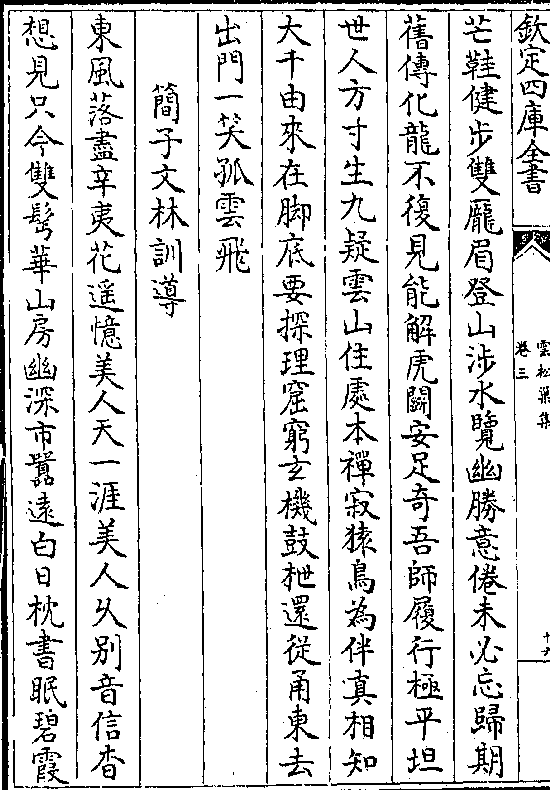 欽定四庫全書
雲松巢集
卷三
十六
芒鞋健步雙龎眉登山涉水覽幽勝意倦未必忘歸期
舊傳化龍不復見能解虎鬭安足奇吾師履行極平坦
世人方寸生九疑雲山住處本禪寂猿鳥為伴真相知
大千由來在脚底要探理窟窮𤣥機鼓枻還從甬東去
出門一笑孤雲飛
簡子文林訓導
東風落盡辛夷花遥憶美人天一涯美人乆别音信杳
想見只今雙髩華山房幽深市囂遠白日枕書眠碧霞